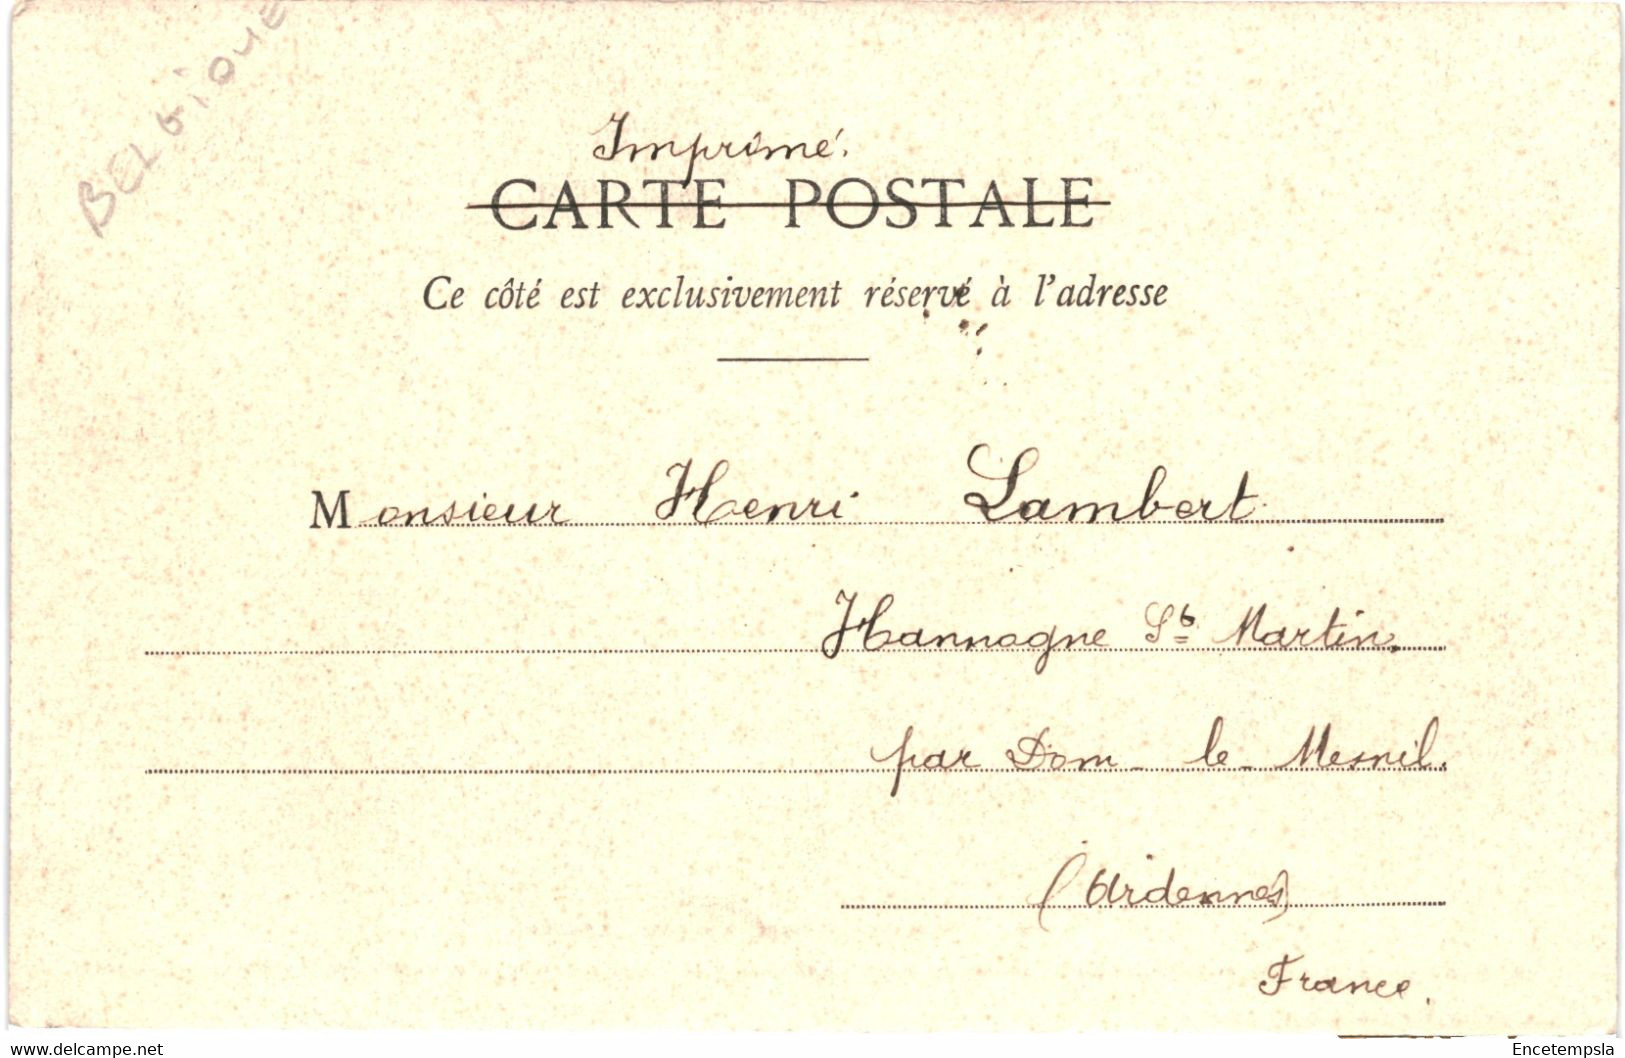 BELGIQUE
Imprimé.
CARTE POSTALE
Ce côté est exclusivement réservé à l'adresse
Monsieur Henri Lambert.
Hannogne St Martin.
par Dom-le-Mesnil.
(Ardennes)
France.
www.delcampe.net
Encetempsla